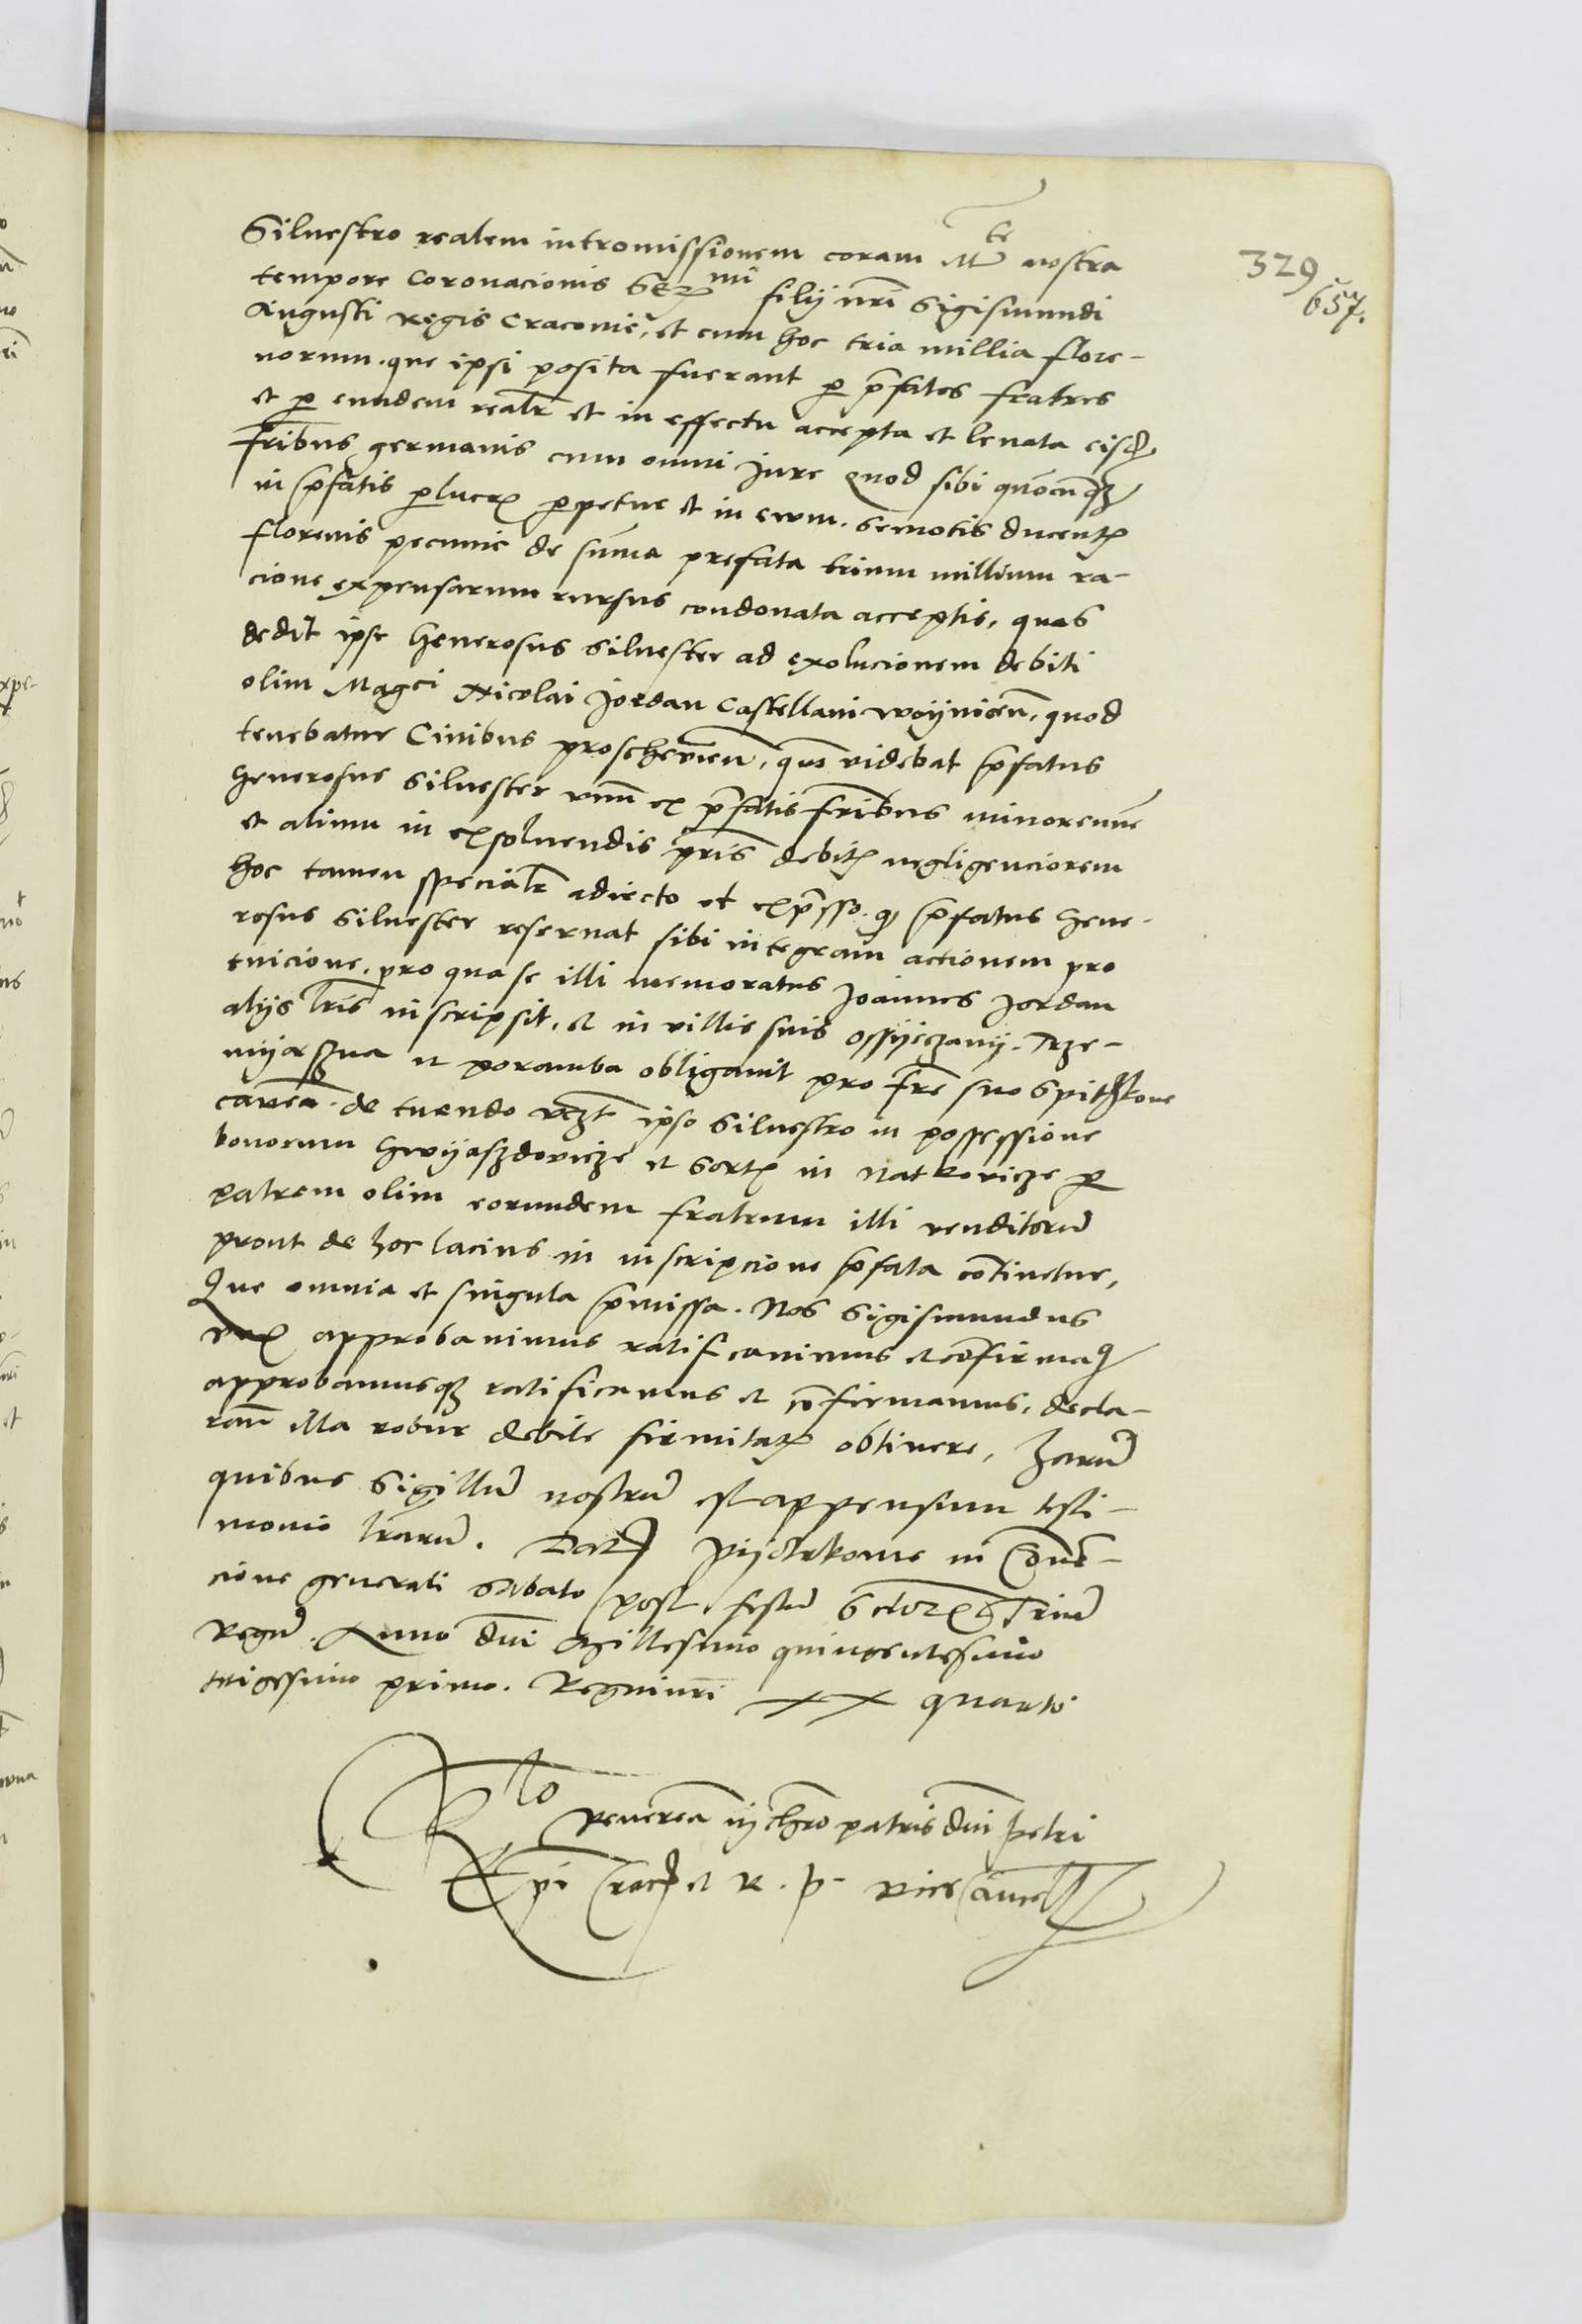 329
657.
Siluestro realem intromissionem coram Mte nostra
tempore Coronacionis Sermi filij nri Sigismundi
Augusti Regis Cracouie, et cum hoc tria millia flore-
norum. que ipsi posita fuerant p pfatos fratres
et p eundem realr et in effectu accepta et leuata eisd
fribus germanis cum omni Jure quod sibi quomcunqz
in pfatis ppetue et in ewm. semotis ducent
florenis pecunie de suma prefata trium millium ra-
cione expensarum rursus condonata acceptis, quos
dedit ipse Generosus Siluester ad exolucionem debiti
olim Magci Nicolai Jordan Castellani woijnicen, quod
tenebatur Ciuibus proschouien, quo videbat pfatus
Generosus Siluester vnum ex pfatis fribus minorenne
et alium in exsoluendis pris debit negligenciorem
hoc tamen specialr adiecto et expsso. q pfatus Gene-
rosus Siluester reseruat sibi integram actionem pro
euicione. pro qua se illi memoratus Joannes Jordan
alijs lris inscripsit, et in villis suis ossijeczanij. Trze-
mijaszna et poramba obligauit pro fre suo Spithkone
cauea. de tuendo vczt ipso Siluestro in possessione
bonorum Gwijaszdowicze et Sort in Natkowicze p
patrem olim eorundem fratrum illi venditoru
prout de hoc lacius in inscripcione pfata continetur,
Que omnia et singula pmissa. Nos Sigismundus
rex approbauimus ratificauimus et confirma
approbamusqz ratificamus et confirmamus, decla-
ran illa robur debite firmitat obtinere, Haru
quibus Sigillu nostru est appensum testi-
monio lraru. Dat Pijotrkowie in Conue-
cione generali Sabato post festu Sctor Triu
Regu. Anno dni Millesimo quingentesimo
trigesimo primo. Regni nri XX quarto
Rlo Reueren in Chro patris dni Petri
Epi Crac et R. P. vicecancell